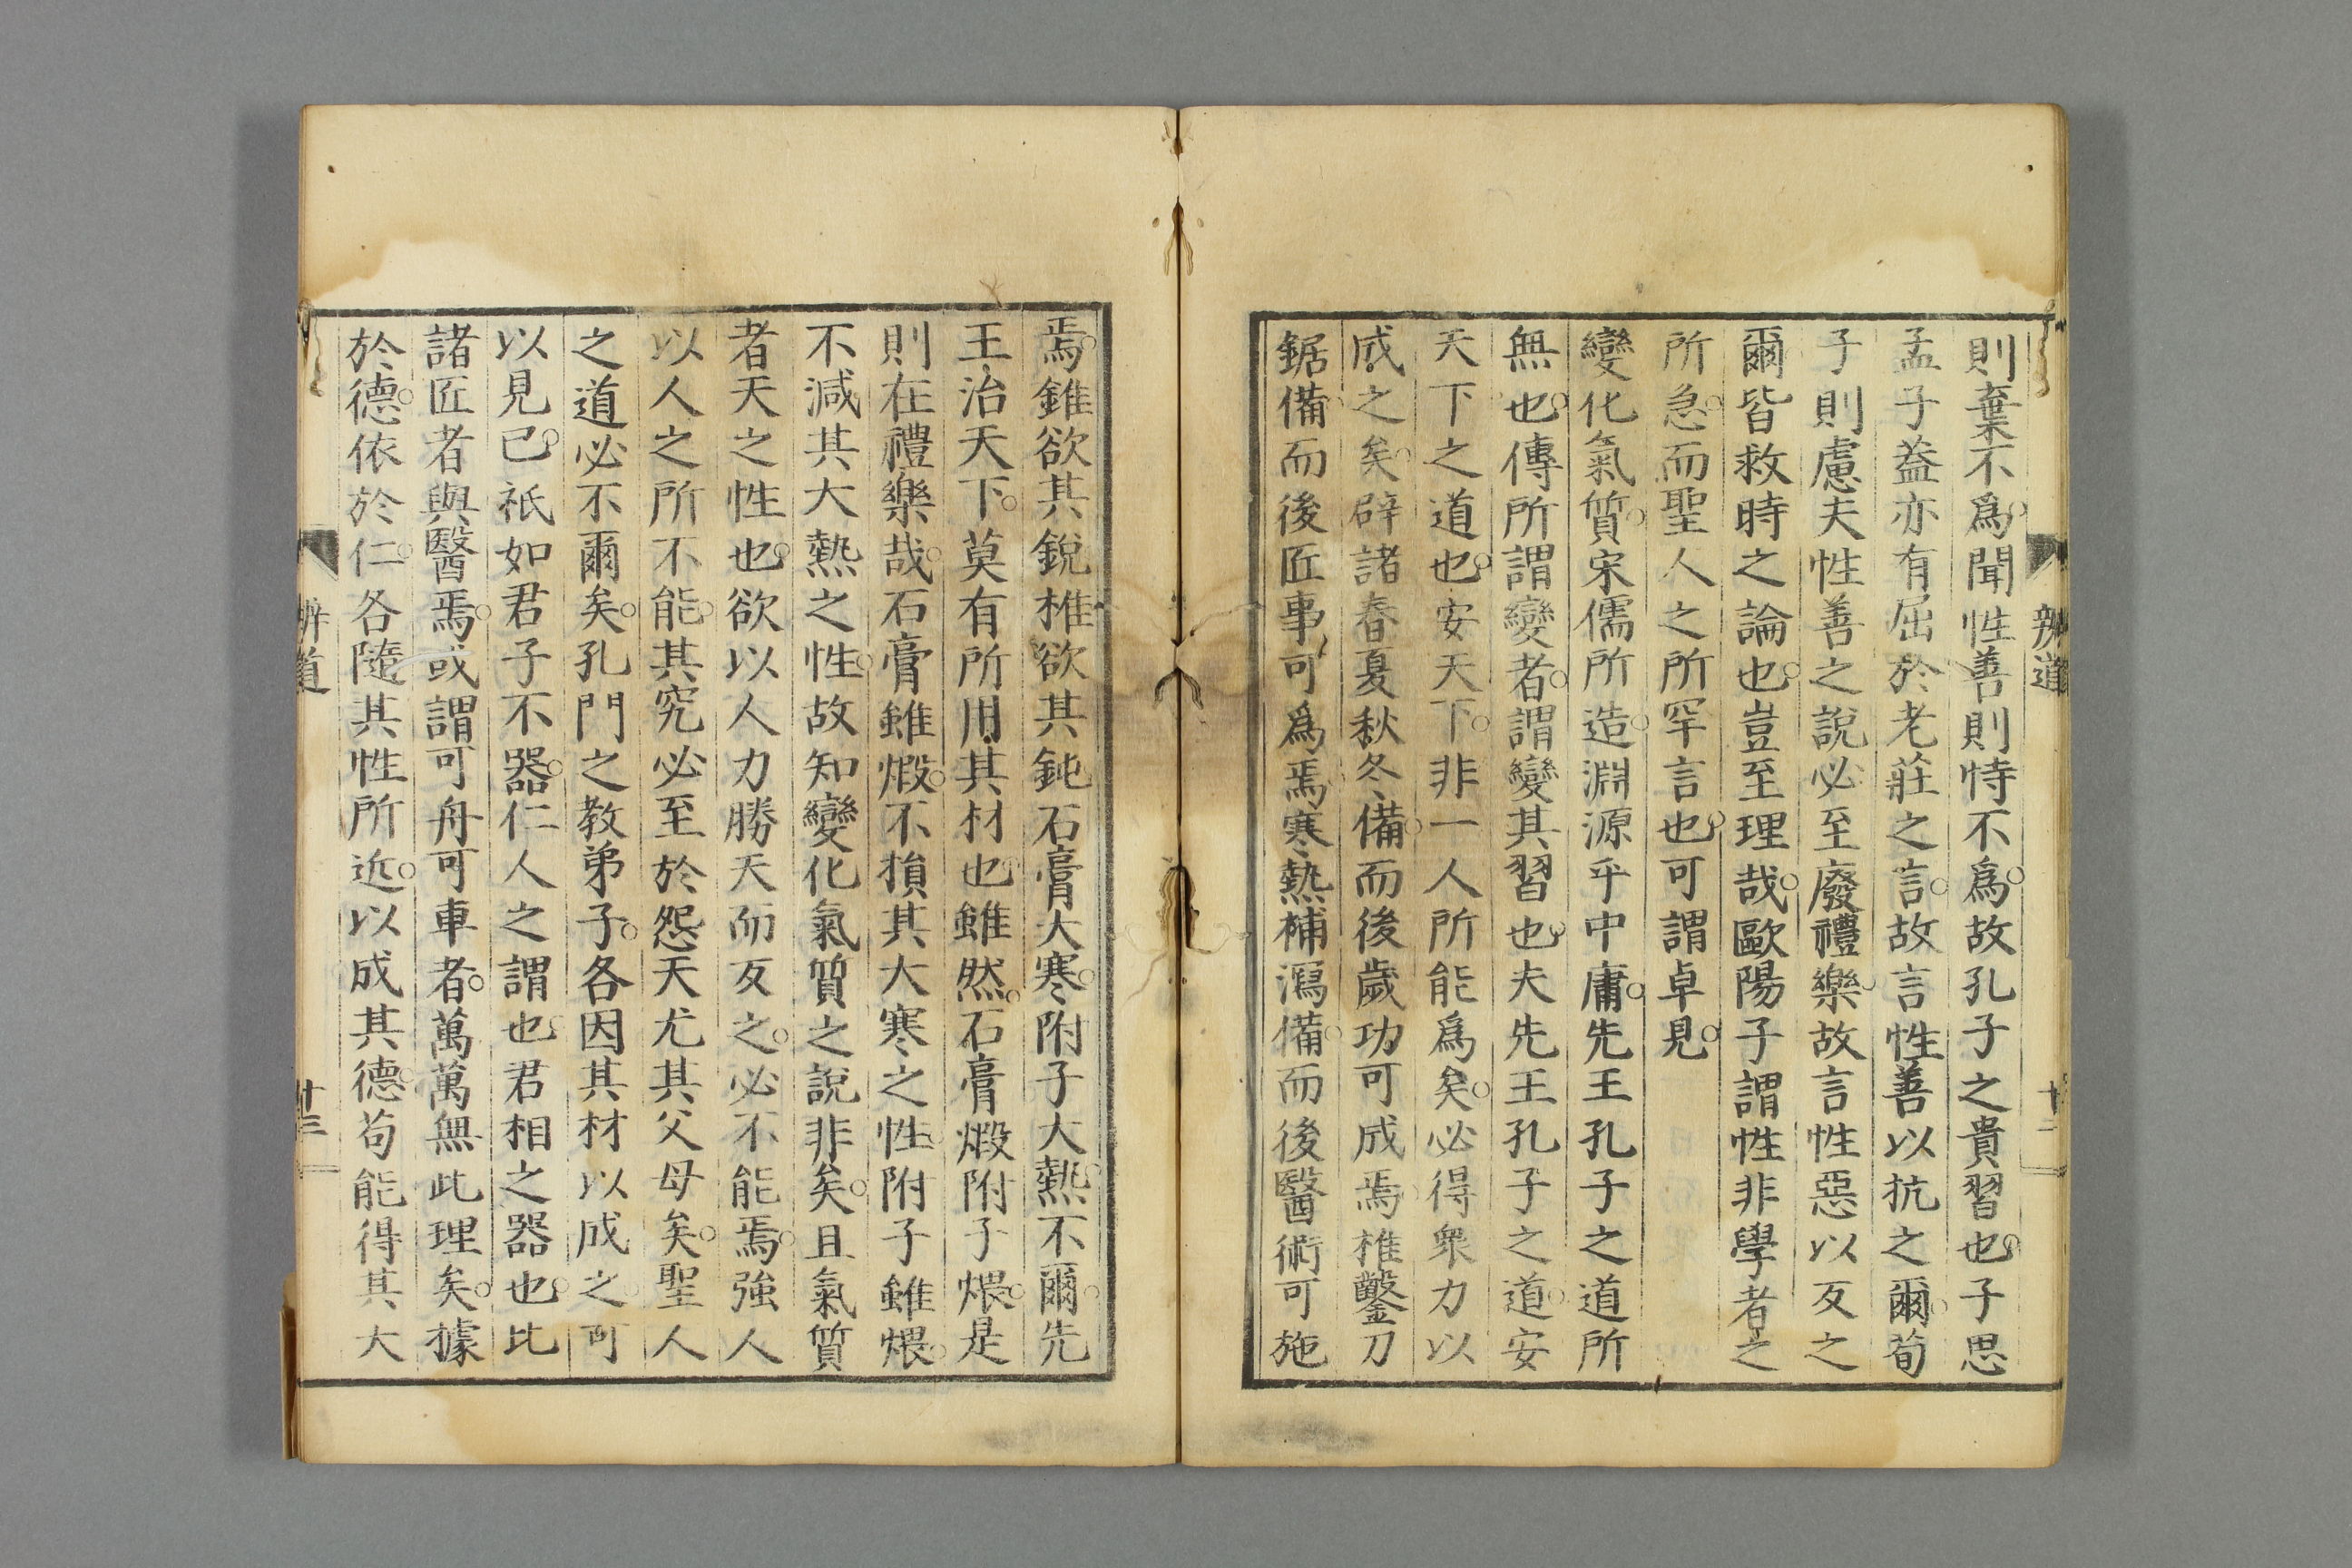 辨道
十二
則棄不爲聞性善則恃不爲故孔子之貴習也子思
孟子蓋亦有屈於老莊之言故言性善以抗之爾荀
子則慮夫性善之說必至廢禮樂故言性惡以反之
爾皆救時之論也豈至理哉歐陽子謂性非學者之
所急而聖人之所罕言也可謂卓見
變化氣質宋儒所造淵源乎中庸先王孔子之道所
無也傳所謂變者謂變其習也夫先王孔子之道安
天下之道也安天下非一人所能爲矣必得衆力以
成之矣辟諸春夏秋冬備而後歲功可成焉椎鑿刀
鋸備而後匠事可爲焉寒熱補瀉備而後醫術可施
焉錐欲其銳椎欲其鈍石膏大寒附子大熱不爾先
王治天下莫有所用其材也雖然石膏煅附子煨是
則在禮樂哉石膏雖煅不損其大寒之性附子雖煨
不減其大熱之性故知變化氣質之說非矣且氣質
者天之性也欲以人力勝天而反之必不能焉強人
以人之所不能其究必至於怨天尤其父母矣聖人
之道必不爾矣孔門之教弟子各因其材以成之可
以見已祇如君子不器仁人之謂也君相之器也比
諸匠者與醫焉或謂可舟可車者萬萬無此理矣據
於德依於仁各隨其性所近以成其德苟能得其大
辨道
十三